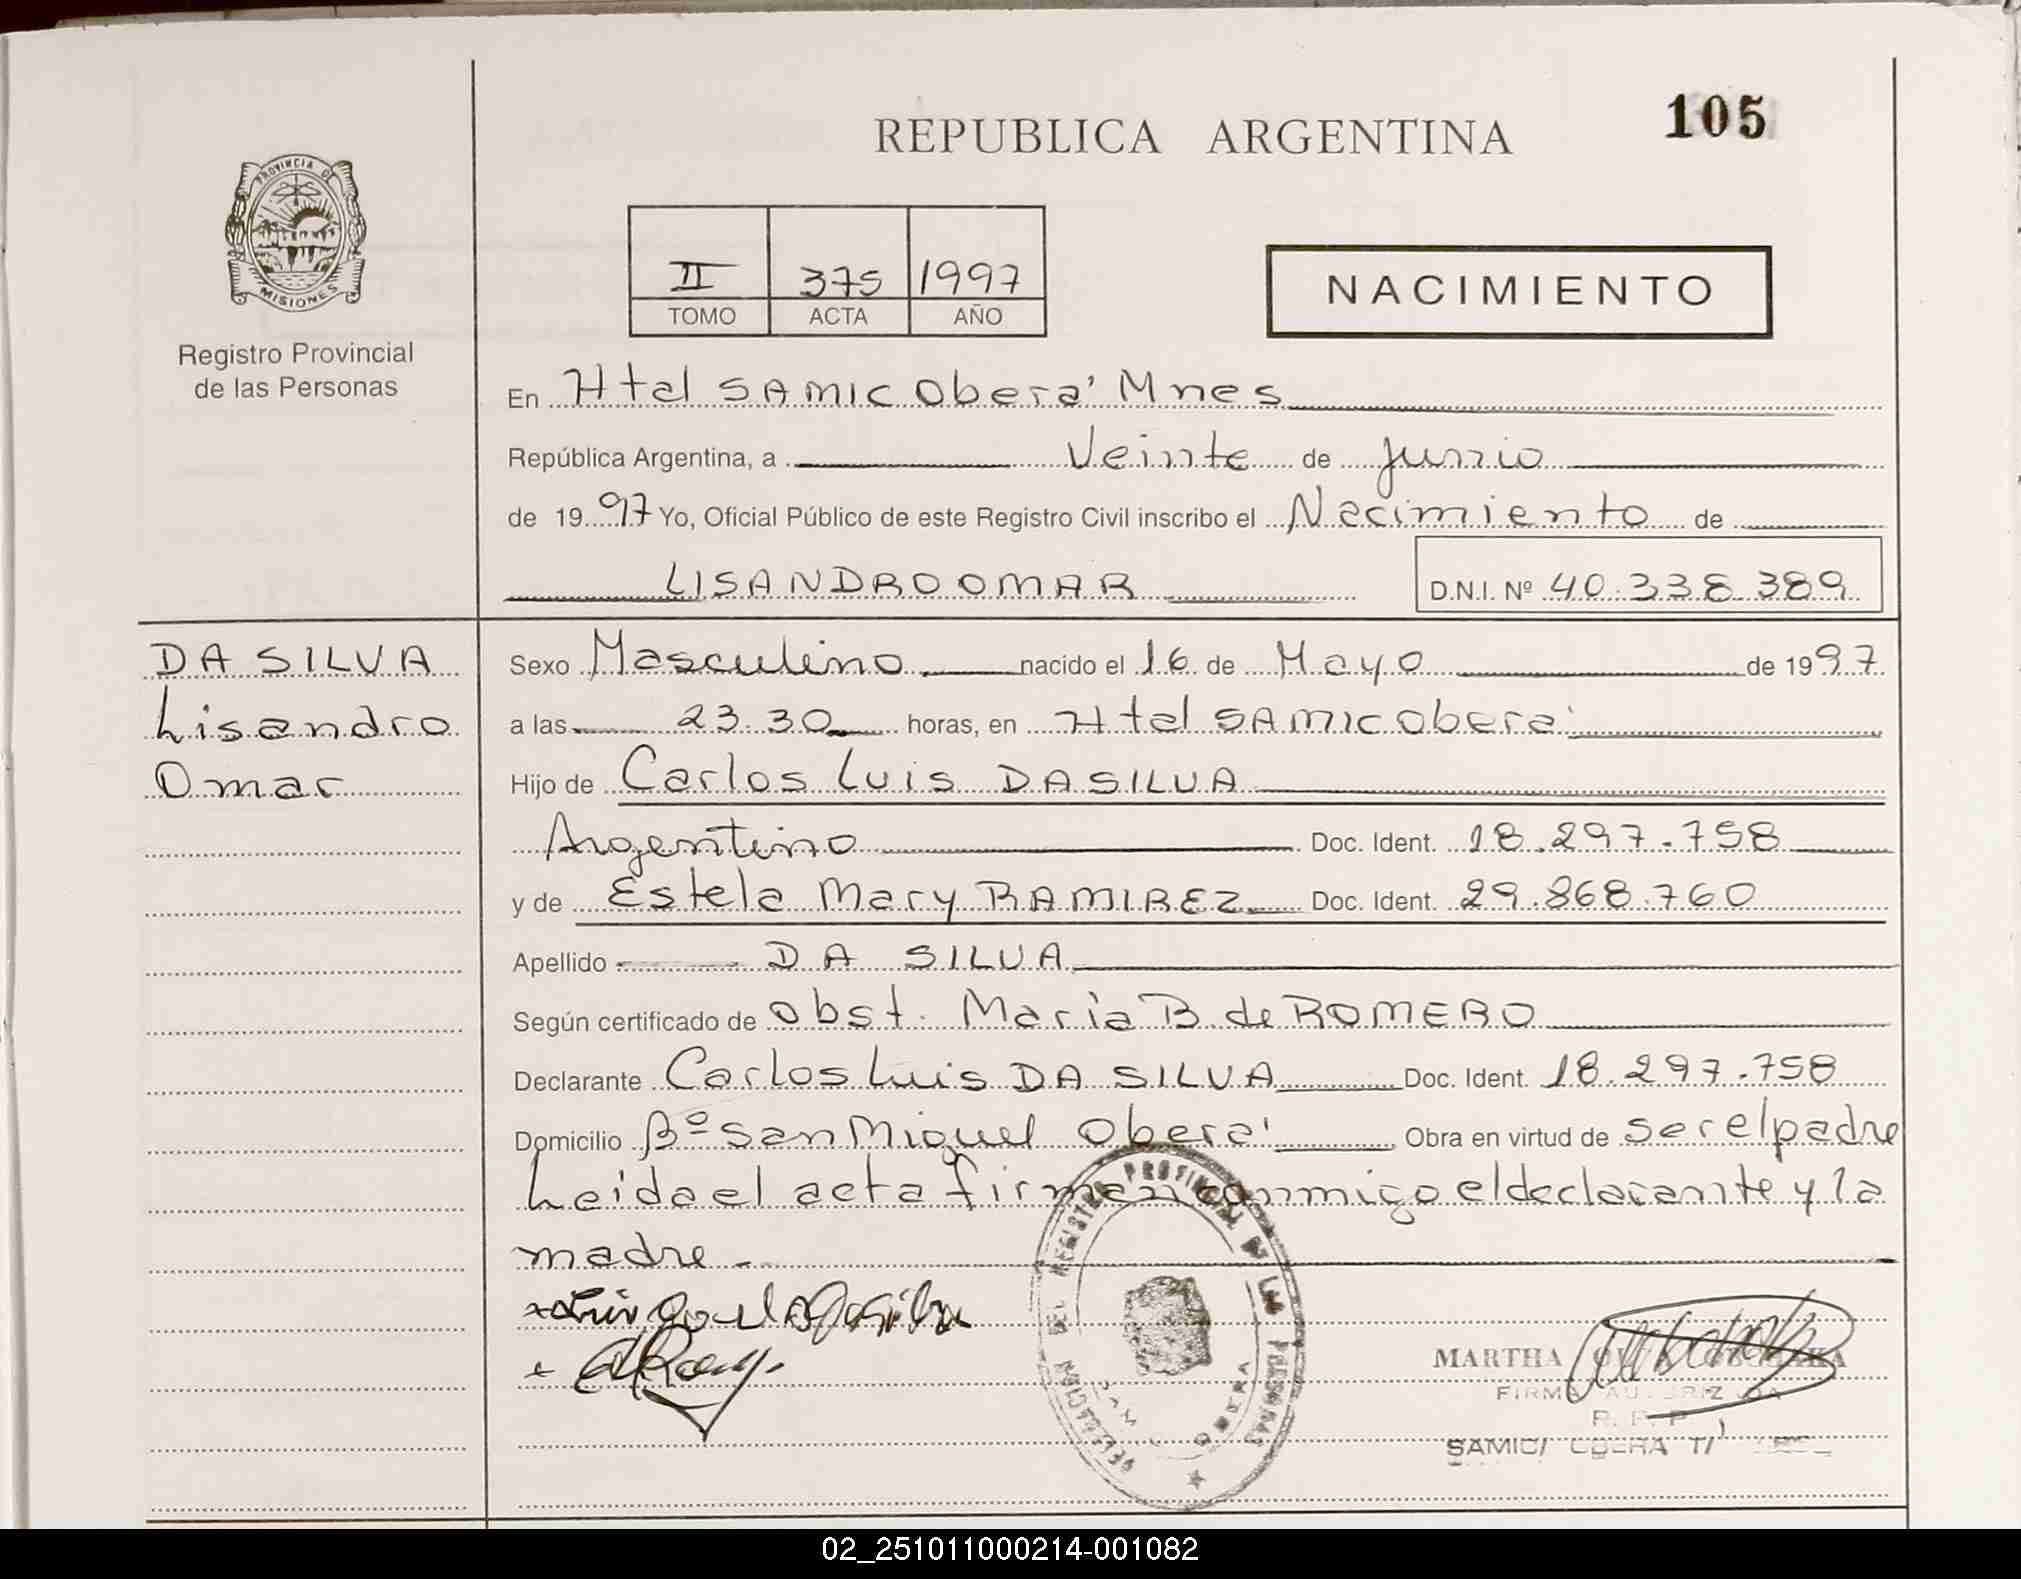 105
REPUBLICA ARGENTINA
PROVINCIA DE
MISIONES
Registro Provincial
de las Personas
II 375 1997
TOMO ACTA AÑO
NACIMIENTO
En Htal SAMIC Oberá Mnes
República Argentina, a Veinte de Junio
de 1997 Yo, Oficial Público de este Registro Civil inscribo el Nacimiento de
LISANDRO OMAR D.N.I. Nº 40.338.389
DA SILVA
Lisandro
Omar
Sexo Masculino nacido el 16 de Mayo de 1997
a las 23.30 horas, en Htal SAMIC Oberá
Hijo de Carlos Luis DA SILVA
Argentino Doc. Ident. 18.297.758
y de Estela Mary RAMIREZ Doc. Ident. 29.868.760
Apellido DA SILVA
Según certificado de Obst. María B. de ROMERO
Declarante Carlos Luis DA SILVA Doc. Ident. 18.297.758
Domicilio Bº San Miguel Oberá Obra en virtud de ser el padre
Leida el acta firman conmigo el declarante y la
madre.-
DELEGACION DEL REGISTRO PROVINCIAL DE LAS PERSONAS
OBERA
MARTHA
FIRMA AUTORIZADA
R. P. P.
SAMIC OBERA
02_251011000214-001082